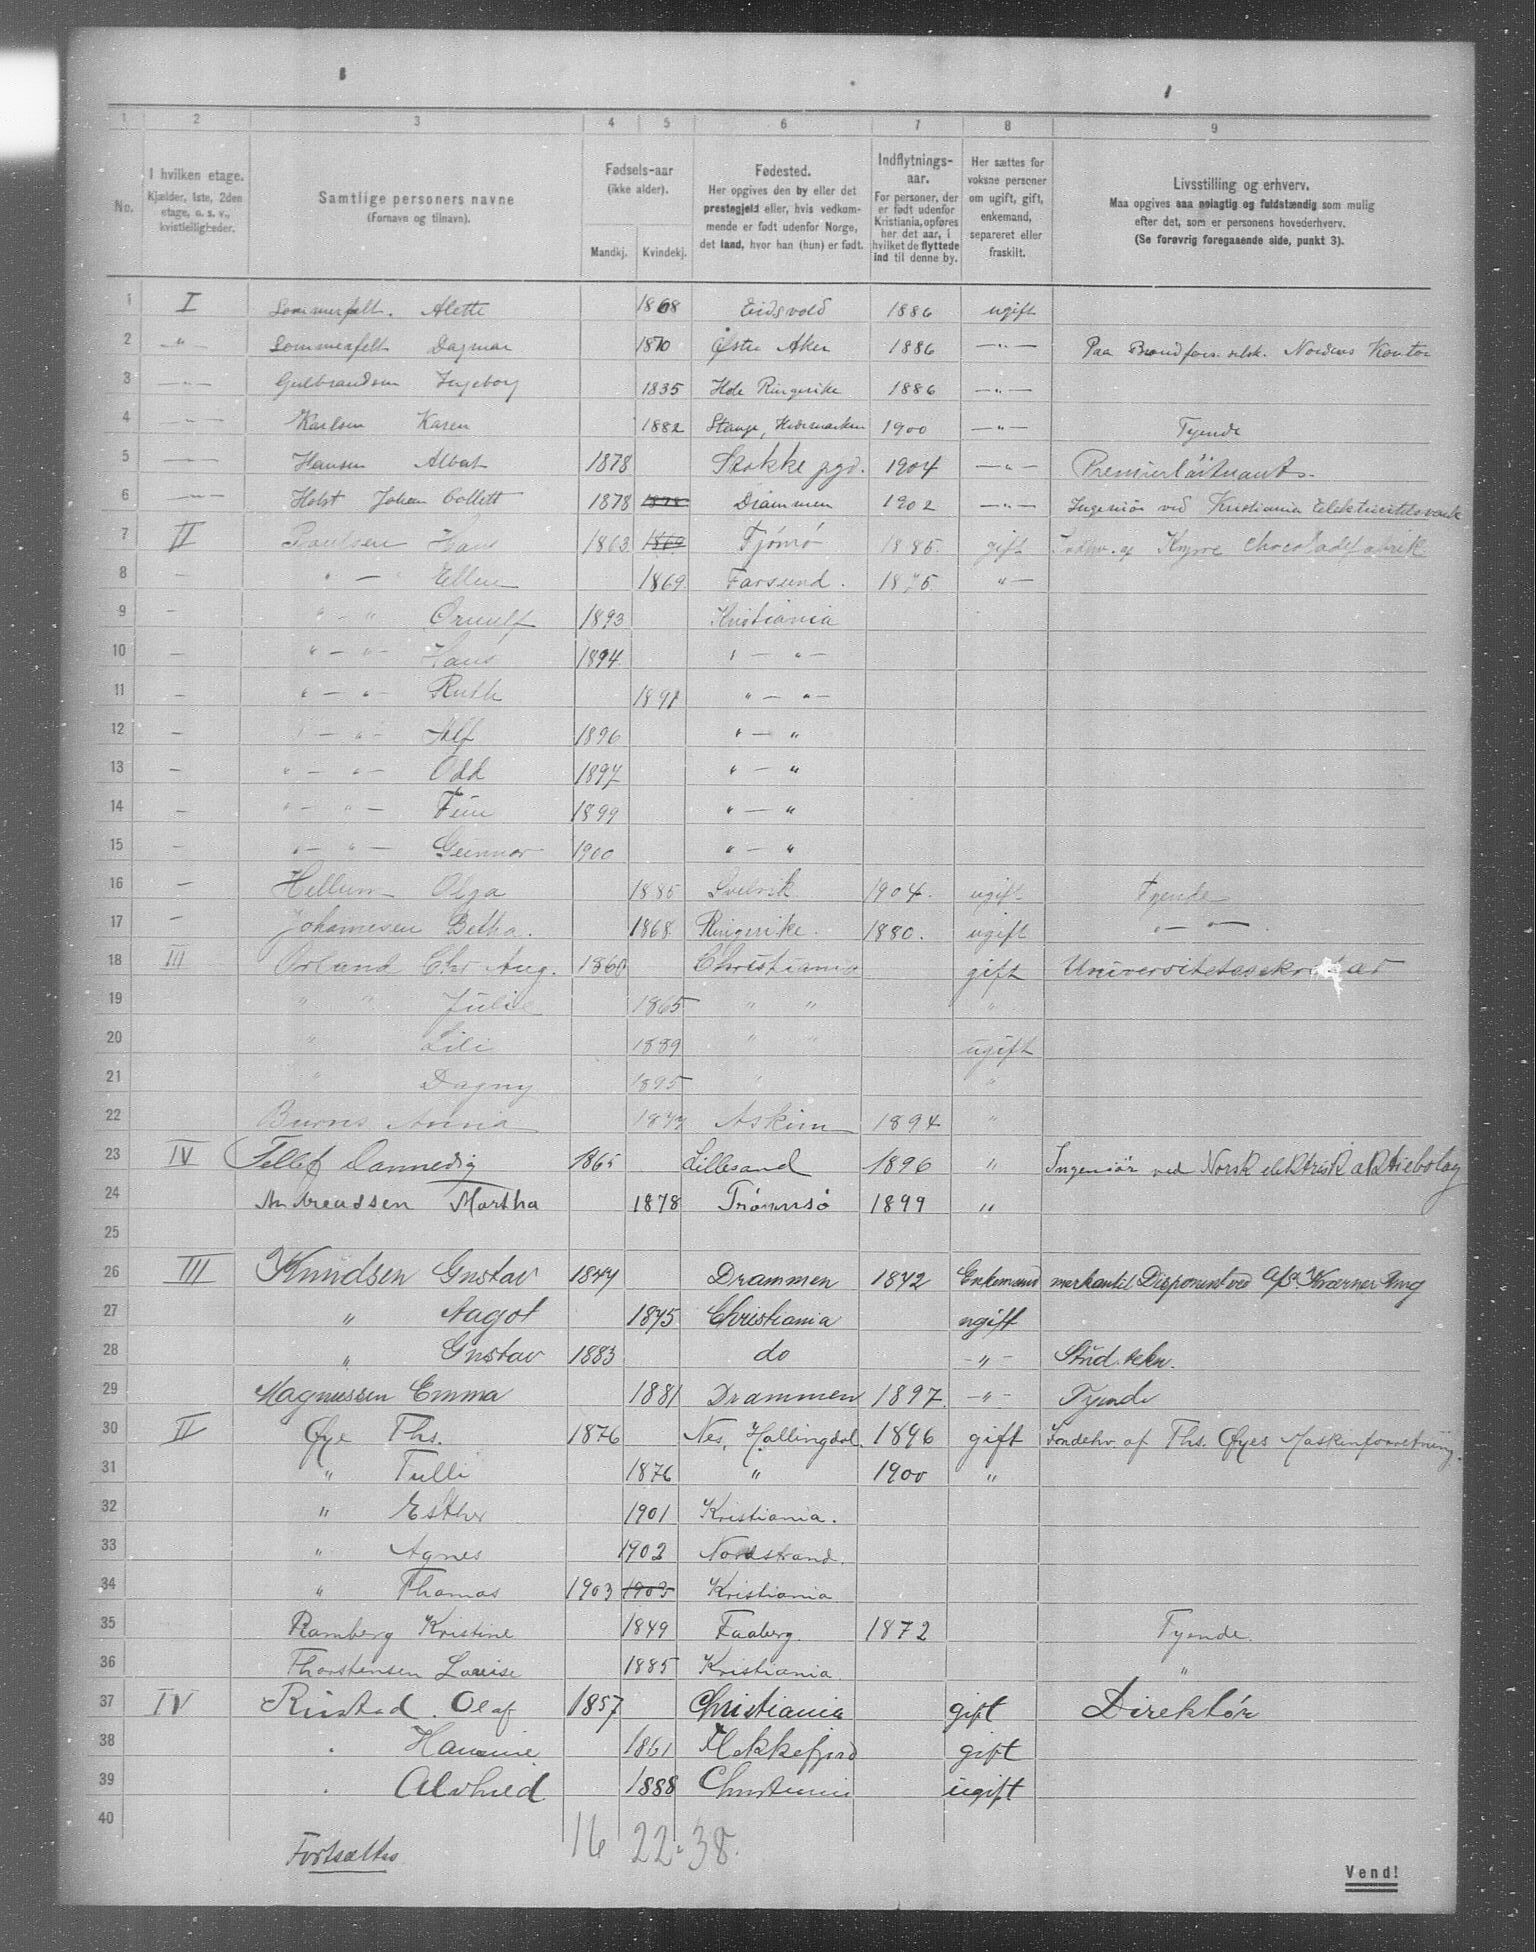 1 2 3 4 5 6 7 8 9
No. I hvilken etage. Kjælder, 1ste, 2den etage, o. s. v., kvistleiligheder. Samtlige personers navne (Fornavn og tilnavn). Fødsels-aar (ikke alder). Mandkj. Kvindekj. Fødested. Her opgives den by eller det prestegjeld eller, hvis vedkommende er født udenfor Norge, det land, hvor han (hun) er født. Indflytnings-aar. For personer, der er født udenfor Kristiania, opføres her det aar, i hvilket de flyttede ind til denne by. Her sættes for voksne personer om ugift, gift, enkemand, separeret eller fraskilt. Livsstilling og erhverv. Maa opgives saa nøiagtig og fuldstændig som mulig efter det, som er personens hovederhverv. (Se forøvrig foregaaende side, punkt 3).
1 I Sommerfelt. Alette 1868 Eidsvold 1886 ugift
2 " Sommerfelt Dagmar 1870 Østre Aker 1886 " Paa Brandfors. selsk. Nordens Kontor
3 " Gulbrandsen Ingeborg 1835 Hole Ringerike 1886 "
4 " Karlsen Karen 1882 Stange, Hedemarken 1900 " Tyende
5 " Hansen Albert 1878 Stokke pgd. 1904 " Premierløitnant
6 " Holst Johan Collett 1878 1878 Drammen 1902 " Ingeniør ved Kristiania Elektricitetsverk
7 II Paulsen Hans 1863 1869 Tjømø 1885. gift Indhv. af Chocoladefabrik
8 — " — Ellen 1869 Farsund. 1875 " —
9 — " — " Ørnulf 1893 Kristiania
10 " — " — Hans 1894 " — " —
11 — " — " — Ruth 1891 " — " —
12 — " — " — Alf 1896 " — "
13 — " — " — Odd 1897 " — "
14 — " — " — Finn 1899 " — "
15 — " — " — Gunnar 1900 " — "
16 — Hellum Olga 1885 Svelvik 1904. ugift Tyende
17 — Johannesen Betha. 1868 Ringerike. 1880. ugift " — " —
18 III Orland Chr Aug. 1860 Christiania gift Universitetssekretær
19 " " Julie 1865 " " "
20 " Lili 1889 " " ugift
21 " Dagny 1895 " "
22 Anna Askim 1894 "
23 IV Tellef Dannevig 1865 Lillesand 1896 " Ingeniör ved Norsk elektrisk aktiebolag
24 Andreassen Martha 1878 Trömsö 1899 "
25
26 III Knudsen Gustav 1847 Drammen 1842 Enkemand merkantil Disponent ved A/S. Kværner Brug
27 " Aagot 1875 Christiania ugift
28 " Gustav 1883 do - " - Stud. tekn.
29 Magnussen Emma 1881 Drammen 1897 - " - Tyende
30 II Øye Ths. 1876 Nes, Hallingdal. 1896 gift Indehv. af Ths. Øyes Maskinforretning.
31 " Tulli 1876 " 1900 "
32 " Esther 1901 Kristiania.
33 " Agnes 1902 Nordstrand.
34 " Thomas 1903 1903 Kristiania
35 Ramberg Kristine 1849 Faaberg. 1872 Tyende.
36 Thorstensen Louise 1885 Kristiania. "
37 IV Rustad. Olaf 1857 Christiania gift Direktör
38 " Hannine 1861 Flekkefjord gift
39 " Alvhild 1888 Christiania ugift
40
Fortsættes 16 22. 38.
Vend!